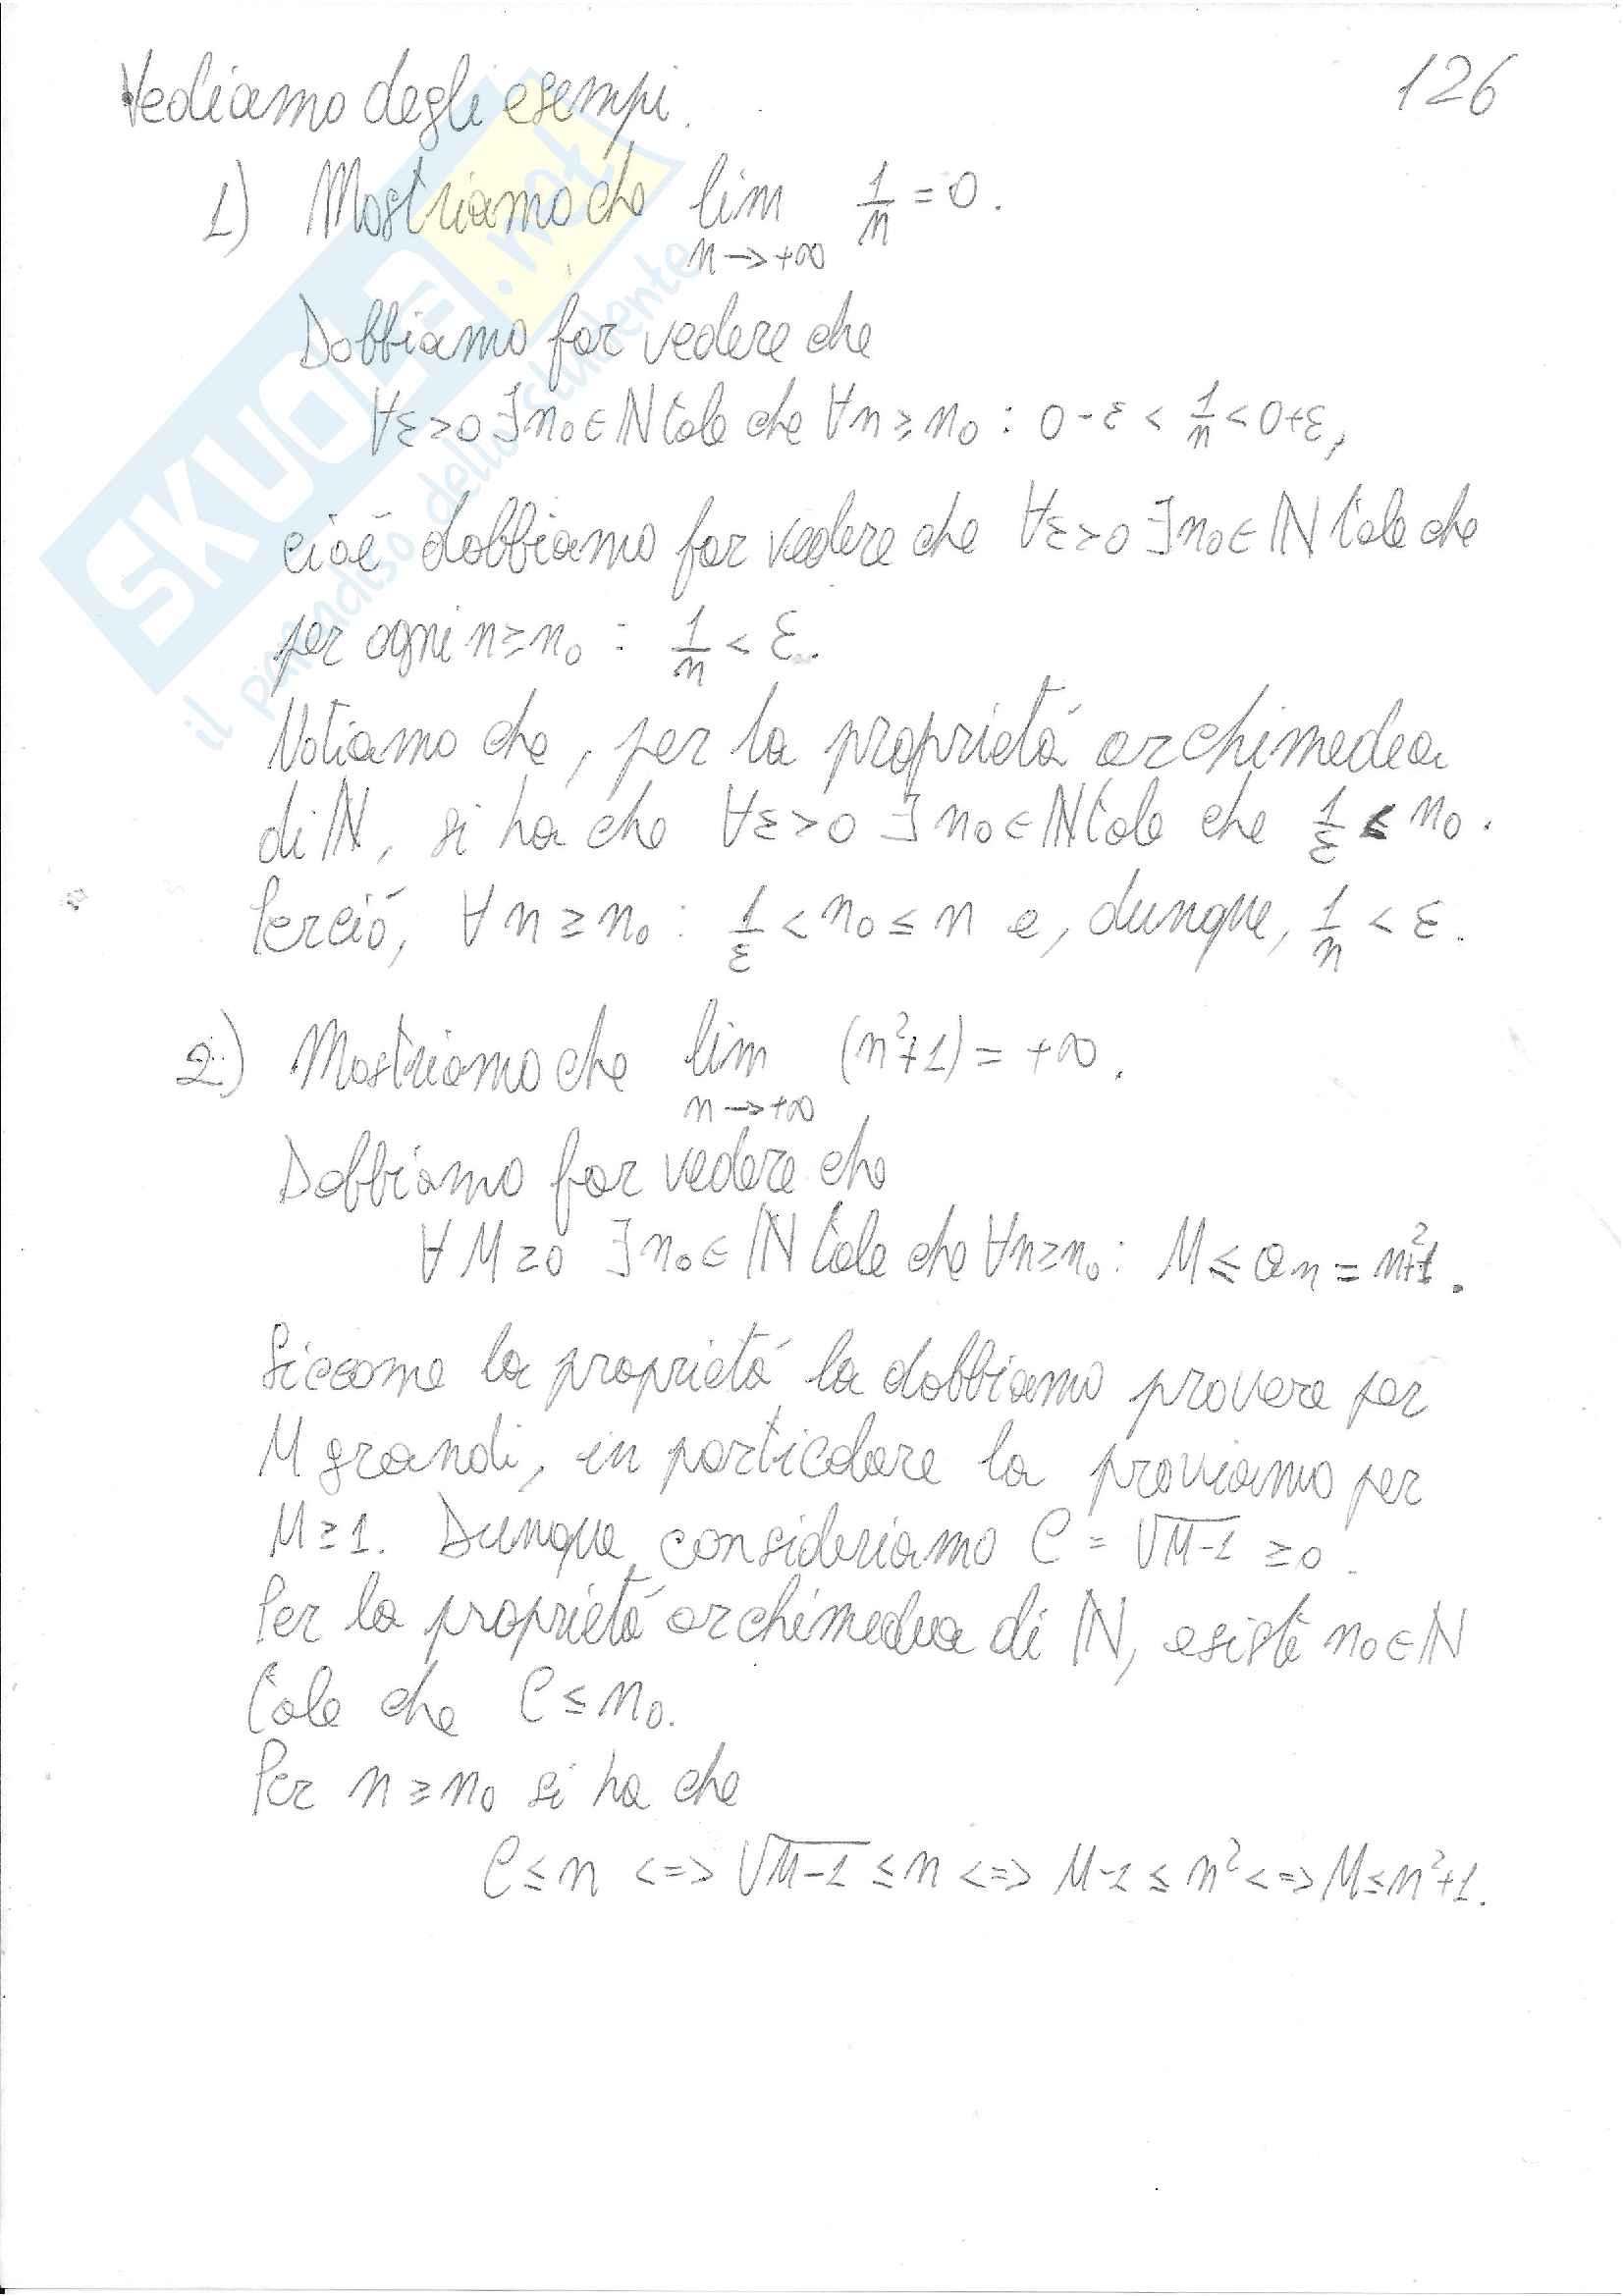 Vediamo degli esempi. 126
1) Mostriamo che lim 1/n = 0.
n→+∞
Dobbiamo far vedere che
∀ε>0 ∃n₀∈ℕ tale che ∀n≥n₀ : 0-ε < 1/n < 0+ε,
cioé dobbiamo far vedere che ∀ε>0 ∃n₀∈ℕ tale che
per ogni n≥n₀ : 1/n < ε.
Notiamo che, per la proprietá archimedea
di ℕ, si ha che ∀ε>0 ∃n₀∈ℕ tale che 1/ε < n₀.
Perció, ∀n≥n₀ : 1/ε < n₀ ≤ n e, dunque, 1/n < ε.
2) Mostriamo che lim (n²+1) = +∞.
n→+∞
Dobbiamo far vedere che
∀M≥0 ∃n₀∈ℕ tale che ∀n≥n₀ : M ≤ an = n²+1.
Siccome la proprietá la dobbiamo provare per
M grandi, in particolare la proviamo per
M≥1. Dunque consideriamo C = √(M-1) ≥0.
Per la proprietá archimedea di ℕ, esiste n₀∈ℕ
tale che C ≤ n₀.
Per n≥n₀ si ha che
C ≤ n <=> √(M-1) ≤ n <=> M-1 ≤ n² <=> M ≤ n²+1.
SKUOLA.net
il paradiso dello studente